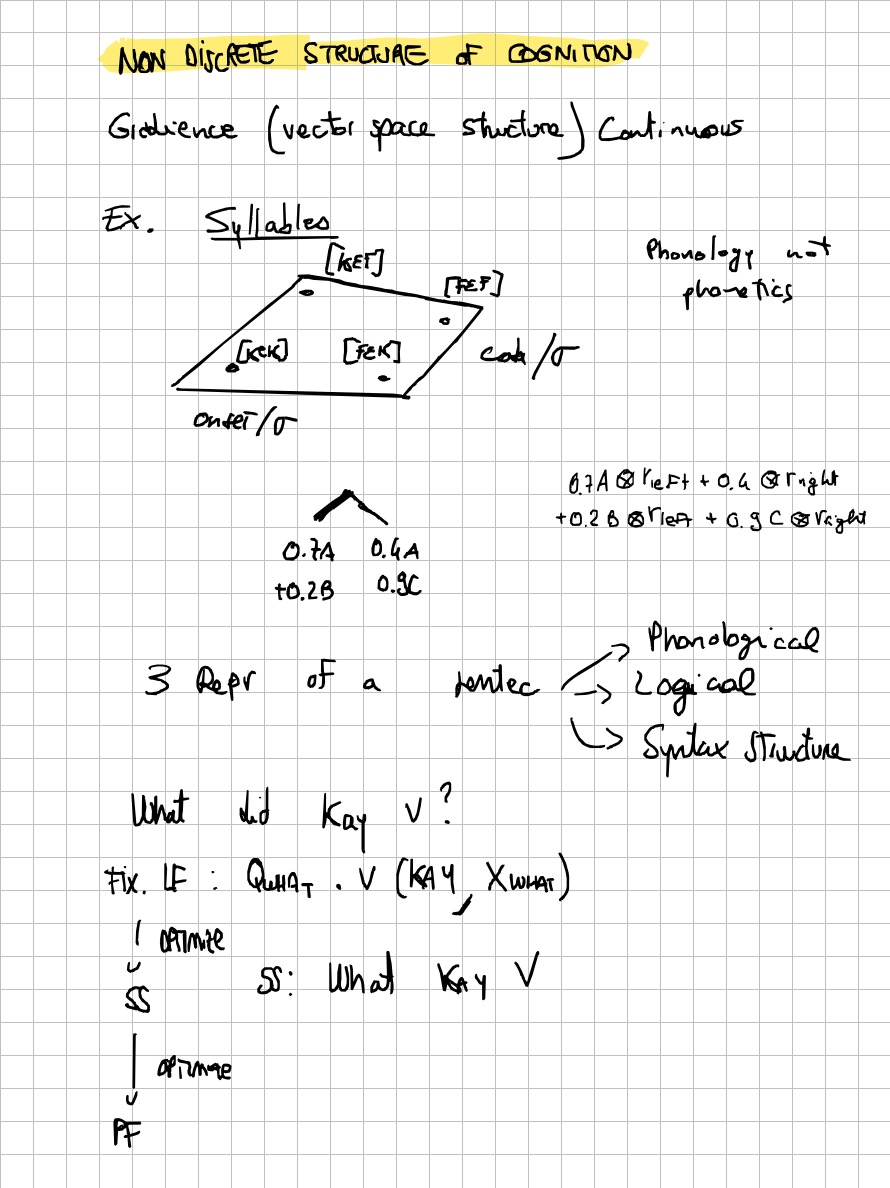 NON DISCRETE STRUCTURE of COGNITION
Gradience (vector space structure) Continuous
Ex. Syllables
Phonology not
phonetics
[KEF]
[FEF]
[KEK]
[FEK]
coda/σ
onset/σ
0.7A ⊗ rleft + 0.4 ⊗ rright
+0.2 B ⊗ rleft + 0.9 C ⊗ rright
0.7A 0.4A
+0.2B 0.9C
3 Repr of a sentec
Phonological
Logical
Syntax Structure
What did Kay V?
Fix. LF : QWHAT . V (KAY, XWHAT)
OPTIMIZE
SS
SS: What KAY V
OPTIMIZE
PF